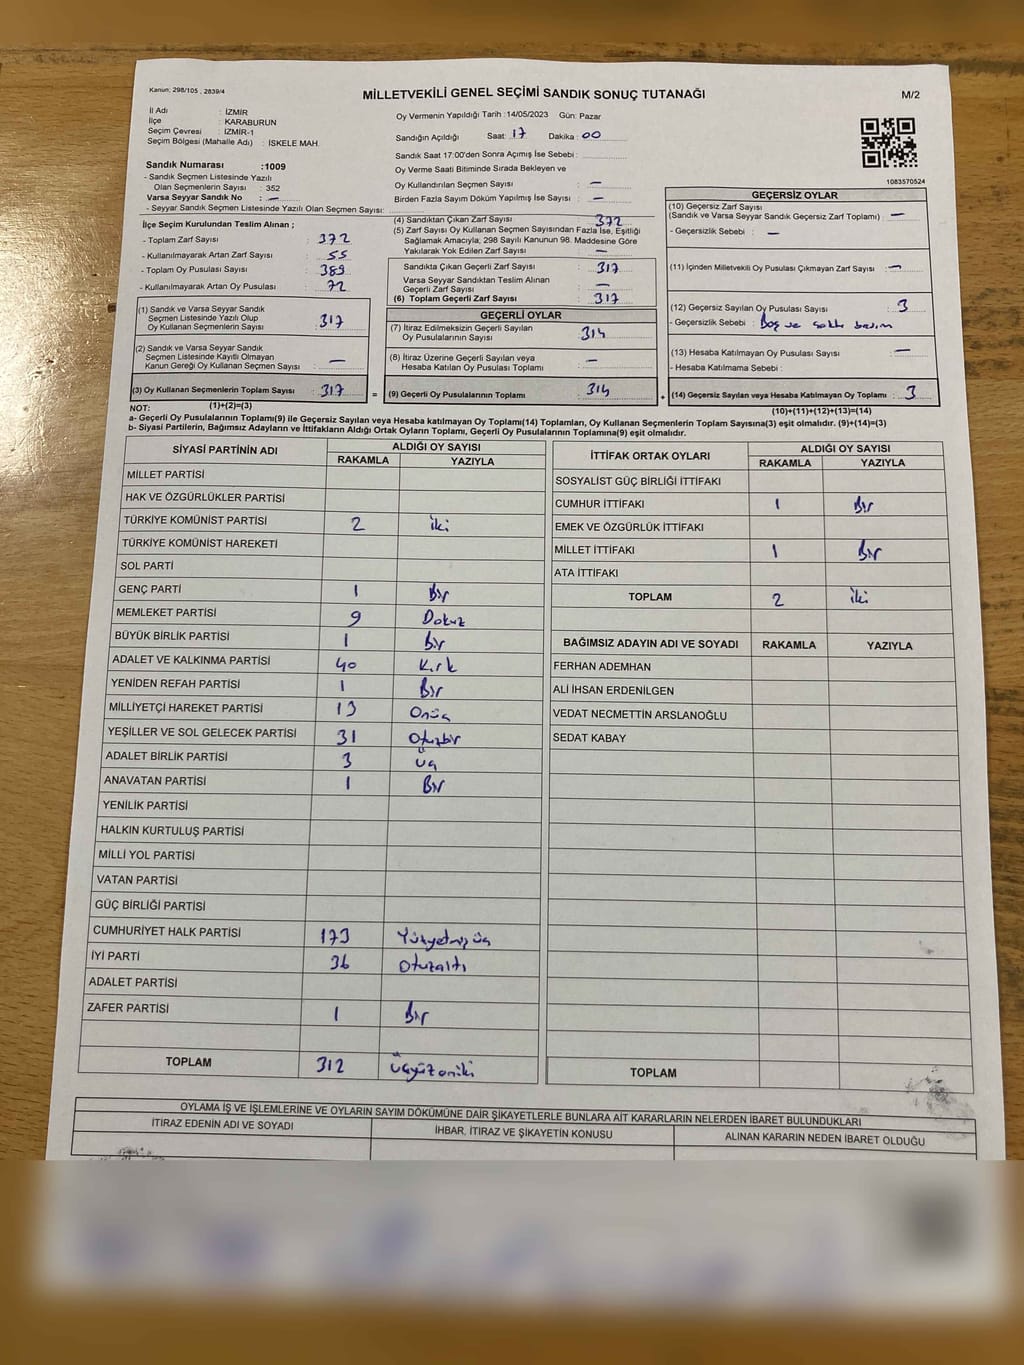 Kanun, 298/105 , 2839/4
MİLLETVEKİLİ GENEL SEÇİMİ SANDIK SONUÇ TUTANAĞI
M/2
İl Adı : İZMİR
İlçe : KARABURUN
Seçim Çevresi : İZMİR-1
Seçim Bölgesi (Mahalle Adı) : İSKELE MAH.
Sandık Numarası :1009
- Sandık Seçmen Listesinde Yazılı
Olan Seçmenlerin Sayısı : 352
Varsa Seyyar Sandık No : —
- Seyyar Sandık Seçmen Listesinde Yazılı Olan Seçmen Sayısı:
Oy Vermenin Yapıldığı Tarih :14/05/2023 Gün: Pazar
Sandığın Açıldığı Saat: 17 Dakika : 00
Sandık Saat 17:00'den Sonra Açımış İse Sebebi :
Oy Verme Saati Bitiminde Sırada Bekleyen ve
Oy Kullandırılan Seçmen Sayısı : —
Birden Fazla Sayım Döküm Yapılmış İse Sayısı : —
1083570524
İlçe Seçim Kurulundan Teslim Alınan ;
- Toplam Zarf Sayısı : 372
- Kullanılmayarak Artan Zarf Sayısı : 55
- Toplam Oy Pusulası Sayısı : 389
- Kullanılmayarak Artan Oy Pusulası : 72
(1) Sandık ve Varsa Seyyar Sandık
Seçmen Listesinde Yazılı Olup
Oy Kullanan Seçmenlerin Sayısı : 317
(2) Sandık ve Varsa Seyyar Sandık
Seçmen Listesinde Kayıtlı Olmayan
Kanun Gereği Oy Kullanan Seçmen Sayısı : —
(3) Oy Kullanan Seçmenlerin Toplam Sayısı : 317
(1)+(2)=(3)
(4) Sandıktan Çıkan Zarf Sayısı : 372
(5) Zarf Sayısı Oy Kullanan Seçmen Sayısından Fazla İse, Eşitliği
Sağlamak Amacıyla, 298 Sayılı Kanunun 98. Maddesine Göre
Yakılarak Yok Edilen Zarf Sayısı : —
Sandıkta Çıkan Geçerli Zarf Sayısı : 317
Varsa Seyyar Sandıktan Teslim Alınan
Geçerli Zarf Sayısı : —
(6) Toplam Geçerli Zarf Sayısı : 317
GEÇERLİ OYLAR
(7) İtiraz Edilmeksizin Geçerli Sayılan
Oy Pusulalarının Sayısı : 314
(8) İtiraz Üzerine Geçerli Sayılan veya
Hesaba Katılan Oy Pusulası Toplamı : —
= (9) Geçerli Oy Pusulalarının Toplamı : 314
GEÇERSİZ OYLAR
(10) Geçersiz Zarf Sayısı
(Sandık ve Varsa Seyyar Sandık Geçersiz Zarf Toplamı) : —
- Geçersizlik Sebebi : —
(11) İçinden Milletvekili Oy Pusulası Çıkmayan Zarf Sayısı : —
(12) Geçersiz Sayılan Oy Pusulası Sayısı : 3
- Geçersizlik Sebebi : Boş ve basım
(13) Hesaba Katılmayan Oy Pusulası Sayısı : —
- Hesaba Katılmama Sebebi :
+ (14) Geçersiz Sayılan veya Hesaba Katılmayan Oy Toplamı : 3
(10)+(11)+(12)+(13)=(14)
NOT:
a- Geçerli Oy Pusulalarının Toplamı(9) ile Geçersiz Sayılan veya Hesaba katılmayan Oy Toplamı(14) Toplamları, Oy Kullanan Seçmenlerin Toplam Sayısına(3) eşit olmalıdır. (9)+(14)=(3)
b- Siyasi Partilerin, Bağımsız Adayların ve İttifakların Aldığı Ortak Oyların Toplamı, Geçerli Oy Pusulalarının Toplamına(9) eşit olmalıdır.
SİYASİ PARTİNİN ADI ALDIĞI OY SAYISI
RAKAMLA YAZIYLA
MİLLET PARTİSİ
HAK VE ÖZGÜRLÜKLER PARTİSİ
TÜRKİYE KOMÜNİST PARTİSİ 2 iki
TÜRKİYE KOMÜNİST HAREKETİ
SOL PARTİ
GENÇ PARTİ 1 Bir
MEMLEKET PARTİSİ 9 Dokuz
BÜYÜK BİRLİK PARTİSİ 1 Bir
ADALET VE KALKINMA PARTİSİ 40 Kırk
YENİDEN REFAH PARTİSİ 1 Bir
MİLLİYETÇİ HAREKET PARTİSİ 13 Onüç
YEŞİLLER VE SOL GELECEK PARTİSİ 31 Otuzbir
ADALET BİRLİK PARTİSİ 3 üç
ANAVATAN PARTİSİ 1 Bir
YENİLİK PARTİSİ
HALKIN KURTULUŞ PARTİSİ
MİLLİ YOL PARTİSİ
VATAN PARTİSİ
GÜÇ BİRLİĞİ PARTİSİ
CUMHURİYET HALK PARTİSİ 173 Yüzyetmişüç
İYİ PARTİ 36 Otuzaltı
ADALET PARTİSİ
ZAFER PARTİSİ 1 Bir
TOPLAM 312 Üçyüzoniki
İTTİFAK ORTAK OYLARI ALDIĞI OY SAYISI
RAKAMLA YAZIYLA
SOSYALİST GÜÇ BİRLİĞİ İTTİFAKI
CUMHUR İTTİFAKI 1 Bir
EMEK VE ÖZGÜRLÜK İTTİFAKI
MİLLET İTTİFAKI 1 Bir
ATA İTTİFAKI
TOPLAM 2 iki
BAĞIMSIZ ADAYIN ADI VE SOYADI RAKAMLA YAZIYLA
FERHAN ADEMHAN
ALİ İHSAN ERDENİLGEN
VEDAT NECMETTİN ARSLANOĞLU
SEDAT KABAY
TOPLAM
OYLAMA İŞ VE İŞLEMLERİNE VE OYLARIN SAYIM DÖKÜMÜNE DAİR ŞİKAYETLERLE BUNLARA AİT KARARLARIN NELERDEN İBARET BULUNDUKLARI
İTİRAZ EDENİN ADI VE SOYADI İHBAR, İTİRAZ VE ŞİKAYETİN KONUSU ALINAN KARARIN NEDEN İBARET OLDUĞU